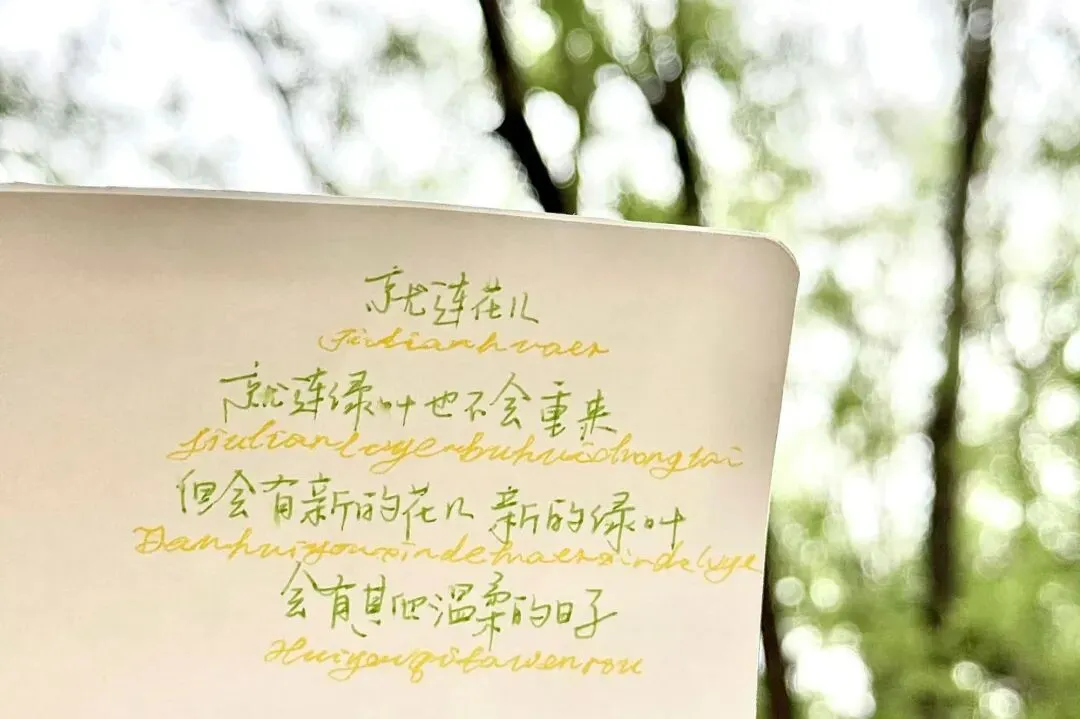 就连花儿
Jiulianhuaer
就连绿叶也不会重来
Jiulianluyeyebuhuichonglai
但会有新的花儿 新的绿叶
Danhuiyouxindehuaerxindelvye
会有其他温柔的日子
Huiyouqitawenrou